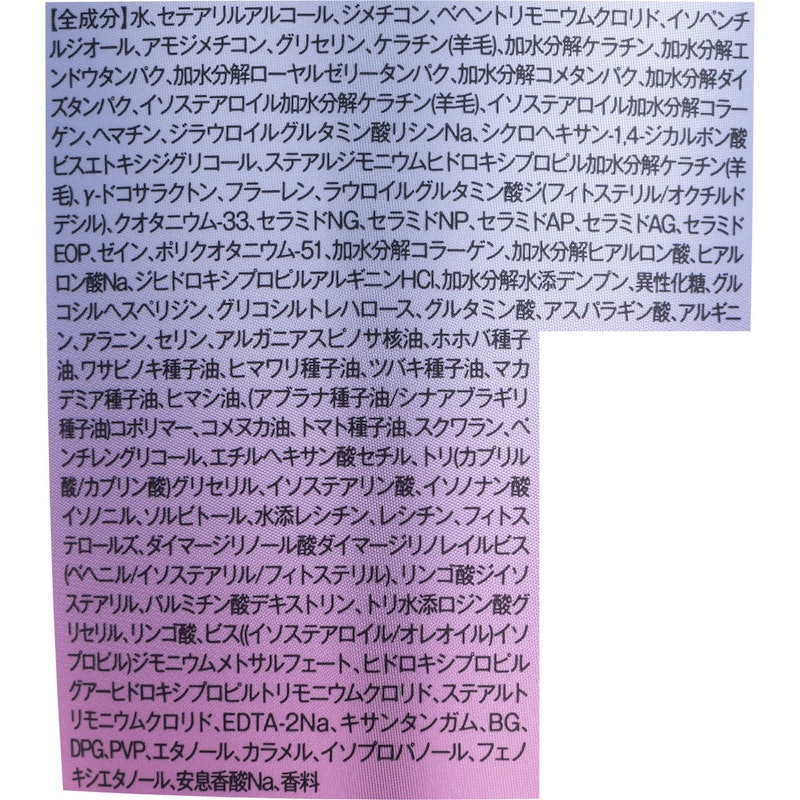 【全成分】水、セテアリルアルコール、ジメチコン、ベヘントリモニウムクロリド、イソペンチ
ルジオール、アモジメチコン、グリセリン、ケラチン(羊毛)、加水分解ケラチン、加水分解エ
ンドウタンパク、加水分解ローヤルゼリータンパク、加水分解コメタンパク、加水分解ダイ
ズタンパク、イソステアロイル加水分解ケラチン(羊毛)、イソステアロイル加水分解コラー
ゲン、ヘマチン、ジラウロイルグルタミン酸リシンNa、シクロヘキサン-1,4-ジカルボン酸
ビスエトキシジグリコール、ステアルジモニウムヒドロキシプロピル加水分解ケラチン(羊
毛)、γ-ドコサラクトン、フラーレン、ラウロイルグルタミン酸ジ(フィトステリル/オクチルド
デシル)、クオタニウム-33、セラミドNG、セラミドNP、セラミドAP、セラミドAG、セラミド
EOP、ゼイン、ポリクオタニウム-51、加水分解コラーゲン、加水分解ヒアルロン酸、ヒアル
ロン酸Na、ジヒドロキシプロピルアルギニンHCl、加水分解水添デンプン、異性化糖、グル
コシルヘスペリジン、グリコシルトレハロース、グルタミン酸、アスパラギン酸、アルギニ
ン、アラニン、セリン、アルガニアスピノサ核油、ホホバ種子
油、ワサビノキ種子油、ヒマワリ種子油、ツバキ種子油、マカ
デミア種子油、ヒマシ油、(アブラナ種子油/シナアブラギリ
種子油)コポリマー、コメヌカ油、トマト種子油、スクワラン、ペ
ンチレングリコール、エチルヘキサン酸セチル、トリ(カプリル
酸/カプリン酸)グリセリル、イソステアリン酸、イソノナン酸
イソノニル、ソルビトール、水添レシチン、レシチン、フィトス
テロールズ、ダイマージリノール酸ダイマージリノレイルビス
(ベヘニル/イソステアリル/フィトステリル)、リンゴ酸ジイソ
ステアリル、パルミチン酸デキストリン、トリ水添ロジン酸グ
リセリル、リンゴ酸、ビス((イソステアロイル/オレオイル)イソ
プロピル)ジモニウムメトサルフェート、ヒドロキシプロピル
グアーヒドロキシプロピルトリモニウムクロリド、ステアルト
リモニウムクロリド、EDTA-2Na、キサンタンガム、BG、
DPG、PVP、エタノール、カラメル、イソプロパノール、フェノ
キシエタノール、安息香酸Na、香料